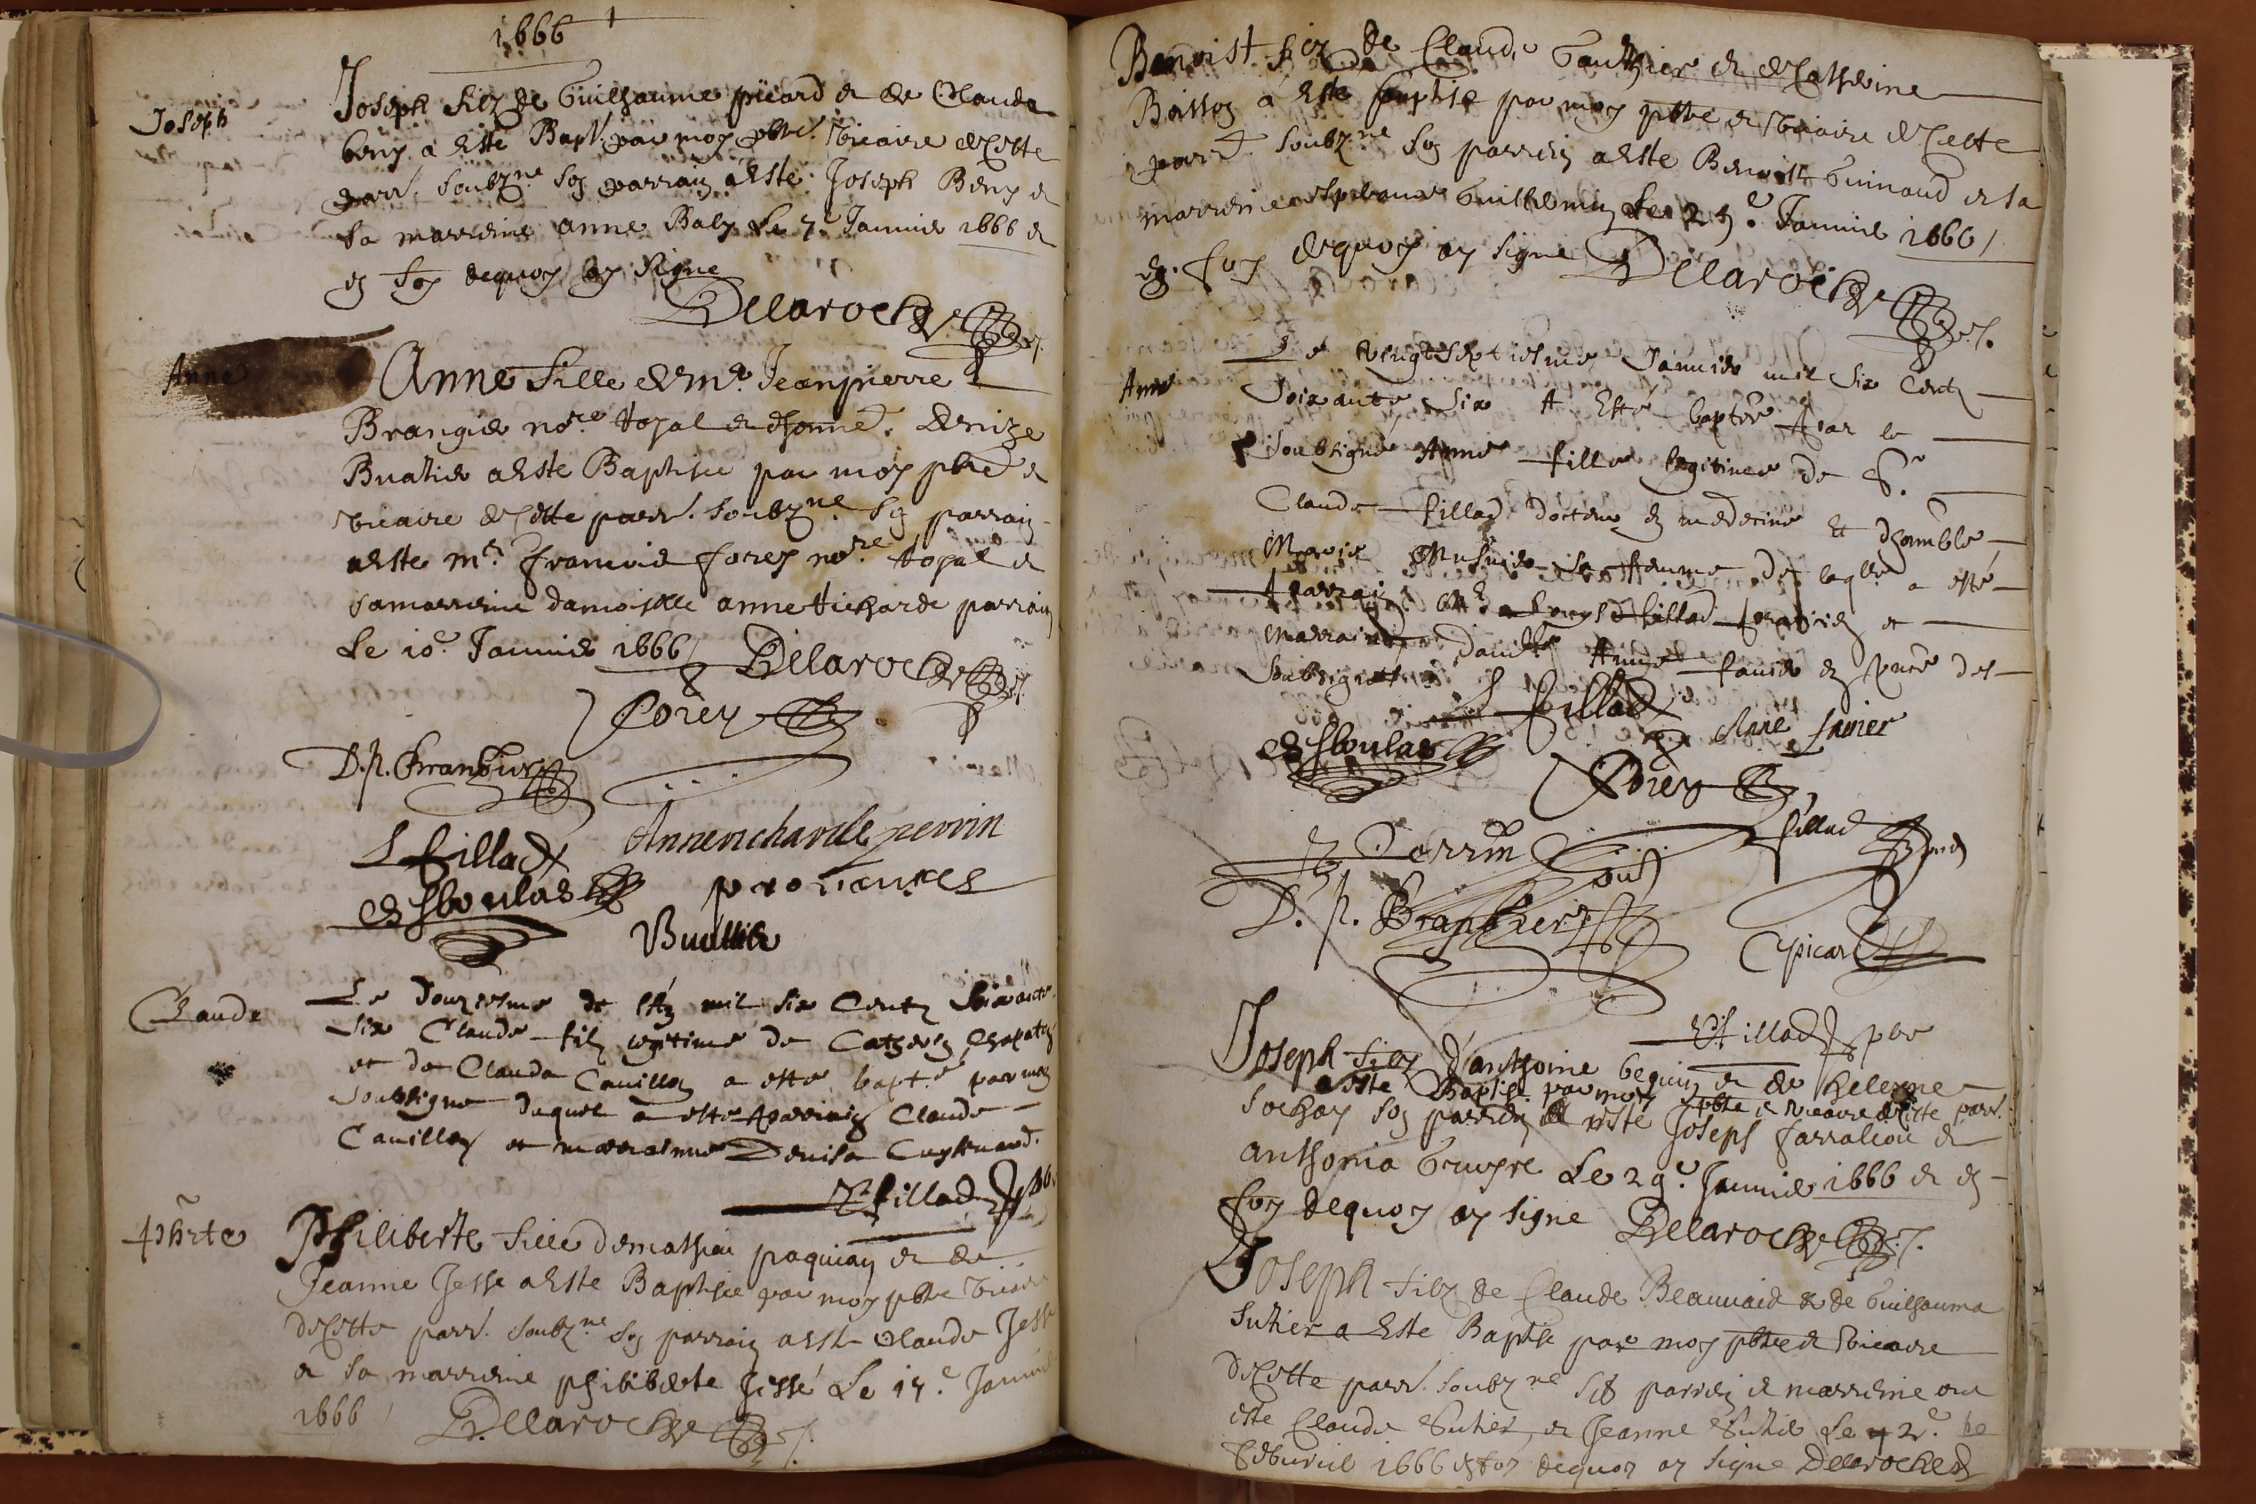 1666
Joseph
Joseph filz de Guilhaume picard et de Claude
beny a Este Bapt. par moy pbre. vicaire de Cette
parr. soubz.ne son parrain a Este Joseph Beny et
sa marreine anne Baly Le 7.e Januier 1666 et
en foy dequoy ay signe
Delaroche
Anne
Anne fille de m.e Jeanpierre
Brangier no.re Royal et d'honne. Denize
Buatier a Este Baptisee par moy pbre et
vicaire de Cette parr. soubz.ne son parrain
a Este m.e francois forey no.re Royal et
sa marreine damoiselle anne Richarde parrain
Le 10.e Januier 1666
Delaroche
Forey
D.p. Brangier
L fillad
Anne richarde perrin
Esboulas
prouances
Buattier
Claude
Le douziesme de l'An mil six Centz soixante
six Claude filz legitime de Catherin
et de Claude Cauillon a esté bapt.e par moy
soubsigne duquel a esté parrain Claude
Cauillon et marrainne Denise
fillad pbr
Phirte
Philiberte fille de mathieu paquian et de
Jeanne Jesse a Este Baptisee par moy pbre vicaire
de Cette parr. soubz.ne son parrain a Este Claude Jesse
et sa marreine philiberte Jesse Le Januie
1666
Delaroche
Benoist filz de Claude Gauthier et de Catherine
Boisson a Este baptise par moy pbre et vicaire de Cette
parr. soubz.ne son parrein a Este Benoist Guinaud et sa
marreine Guillemin Le Januier 1666
en foy dequoy ay signe Delaroche
Anne
Le vingt septiesme Januier mil six Centz
soixante six A Esté baptée par le
soubsigné Anne fille legitime de S.r
Claude fillad docteur en medecine Et dhonnble
Marie sa femme de laqlle a esté
parrain M.e Louys fillad praticien et
marraine dam.lle Anne fauier en pnce des
soubsignés
L fillad
Esboulas
Anne fauier
Forey
Perrin
fillad
D. p. Brangier
picard
fillad pbr
Joseph filz d'anthoine beguin et de heleyne
a Este Baptise par moy pbre et vicaire de Cette parr.
sochay son parrein a este Joseph farraliou et
anthonia Gruyre Le 29.e Januier 1666 et en
foy dequoy ay signe Delaroche
Joseph filz de Claude Beauuaid et de Guilhauma
Suhier a Este Baptise par moy pbre et vicaire
de Cette parr. soubz.ne ses parrein et marreine ont
este Claude Suhier et Jeanne Suhier Le 2.e de
feburier 1666 en foy dequoy ay signe Delaroche